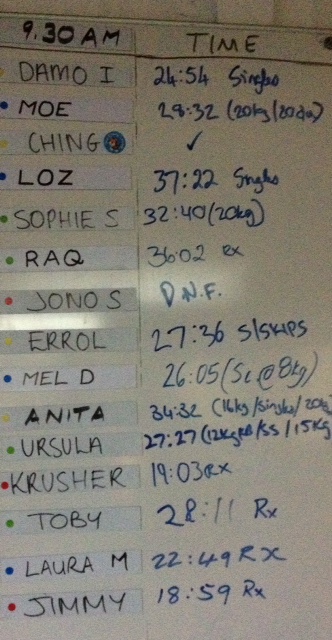 9.30 AM TIME
DAMO I 24:54 Singles
MOE 28:32 (20kg/20du)
CHING ✓
LOZ 37:22 Singles
SOPHIE S 32:40 (20kg)
RAQ 36:02 Rx
JONO S D.N.F.
ERROL 27:36 S/SKIPS
MEL D 26:05 (Sc @ 8kg)
ANITA 34:32 (16kg/Singles/20kg
URSULA 27:27 (12kg /SS/15kg
KRUSHER 19:03 RX
TOBY 28:11 Rx
LAURA M 22:49 RX
JIMMY 18:59 Rx